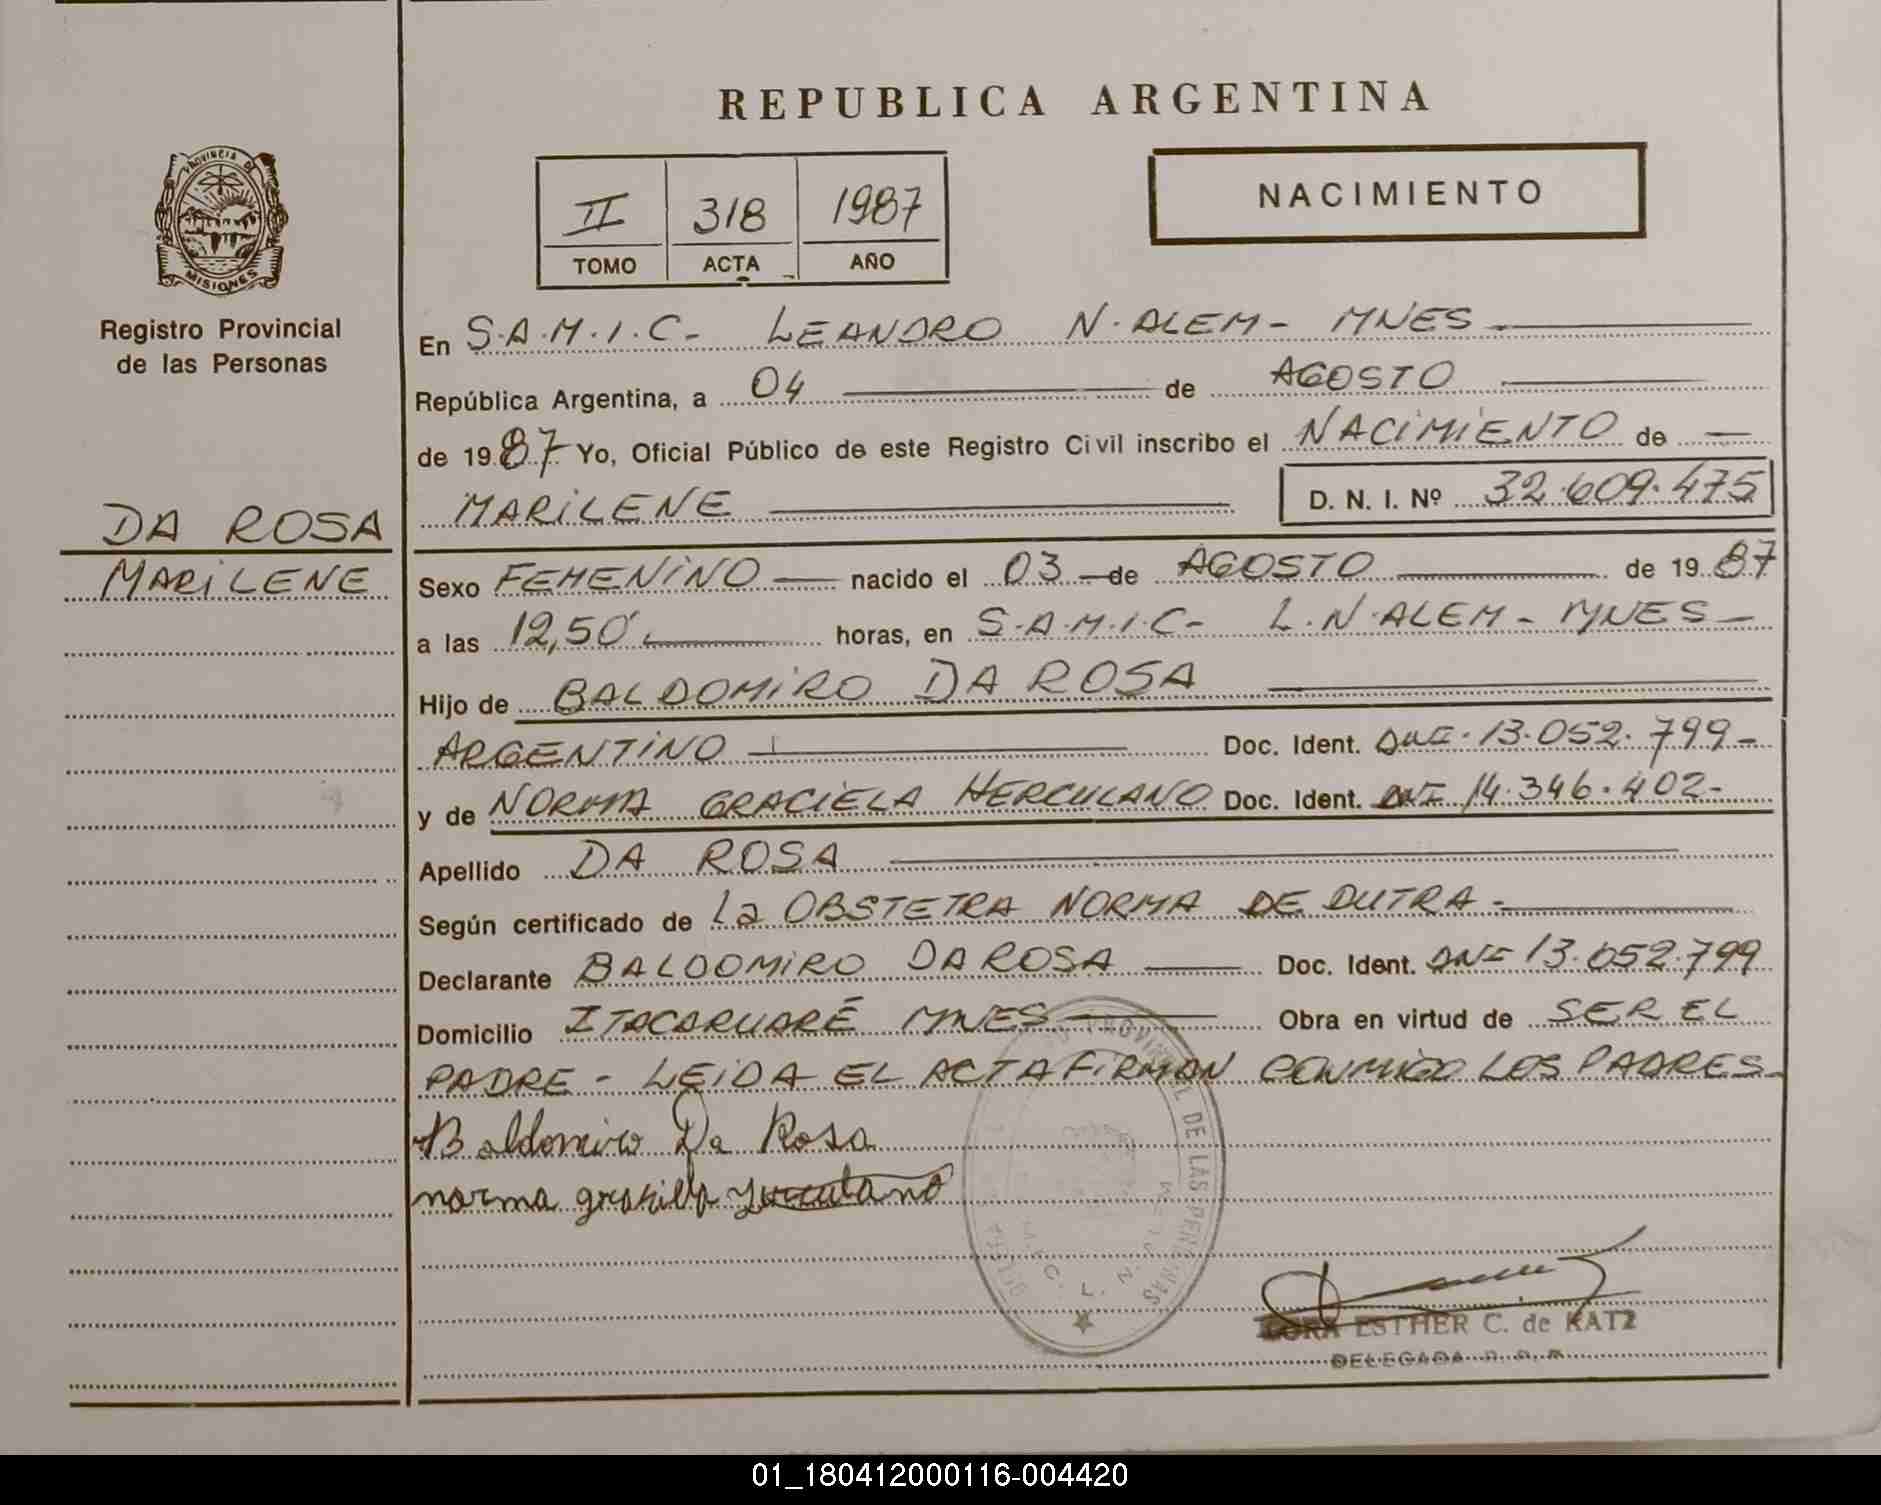 REPUBLICA ARGENTINA
PROVINCIA DE
MISIONES
Registro Provincial
de las Personas
II 318 1987
TOMO ACTA AÑO
NACIMIENTO
En S.A.M.I.C- LEANDRO N. ALEM- MNES
República Argentina, a 04 de AGOSTO
de 1987 Yo, Oficial Público de este Registro Civil inscribo el NACIMIENTO de
MARILENE D. N. I. Nº 32.609.475
DA ROSA
MARILENE
Sexo FEMENINO nacido el 03 de AGOSTO de 1987
a las 12,50 horas, en S.A.M.I.C- L.N.ALEM- MNES-
Hijo de BALDOMIRO DA ROSA
ARGENTINO Doc. Ident. DNI. 13.052.799-
y de NORMA GRACIELA HERCULANO Doc. Ident. DNI 14.346.402-
Apellido DA ROSA
Según certificado de La OBSTETRA NORMA DE DUTRA-
Declarante BALDOMIRO DA ROSA Doc. Ident. DNI 13.052.799
Domicilio ITACARUARÉ MNES Obra en virtud de SER EL
PADRE - LEIDA EL ACTA FIRMAN CONMIGO LOS PADRES-
Baldomiro Da Rosa
norma
DE LAS PERSONAS
ESTHER C. de KATZ
DELEGADA
01_180412000116-004420